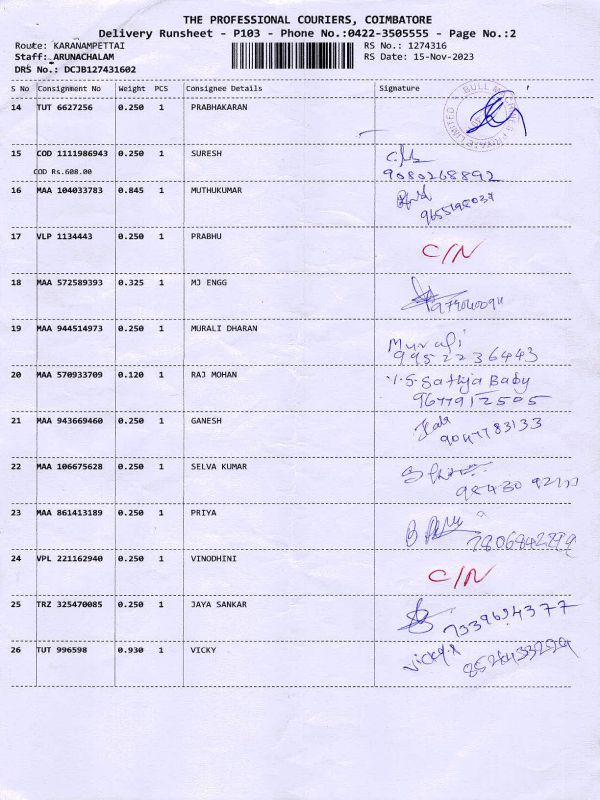 THE PROFESSIONAL COURIERS, COIMBATORE
Delivery Runsheet - P103 - Phone No.:0422-3505555 - Page No.:2
Route: KARANAMPETTAI RS No.: 1274316
Staff: ARUNACHALAM RS Date: 15-Nov-2023
DRS No.: DCJB127431602
S No Consignment No Weight PCS Consignee Details Signature
14 TUT 6627256 0.250 1 PRABHAKARAN
15 COD 1111986943 0.250 1 SURESH
COD Rs.608.00 9080268892
16 MAA 104033783 0.845 1 MUTHUKUMAR
9655198037
17 VLP 1134443 0.250 1 PRABHU C/N
18 MAA 572589393 0.325 1 MJ ENGG
19 MAA 944514973 0.250 1 MURALI DHARAN Murali
9952236443
20 MAA 570933709 0.120 1 RAJ MOHAN Sathja Baby
9677912505
21 MAA 943669460 0.250 1 GANESH
9047783133
22 MAA 106675628 0.250 1 SELVA KUMAR
23 MAA 861413189 0.250 1 PRIYA
24 VPL 221162940 0.250 1 VINODHINI C/N
25 TRZ 325470085 0.250 1 JAYA SANKAR
7339694377
26 TUT 996598 0.930 1 VICKY